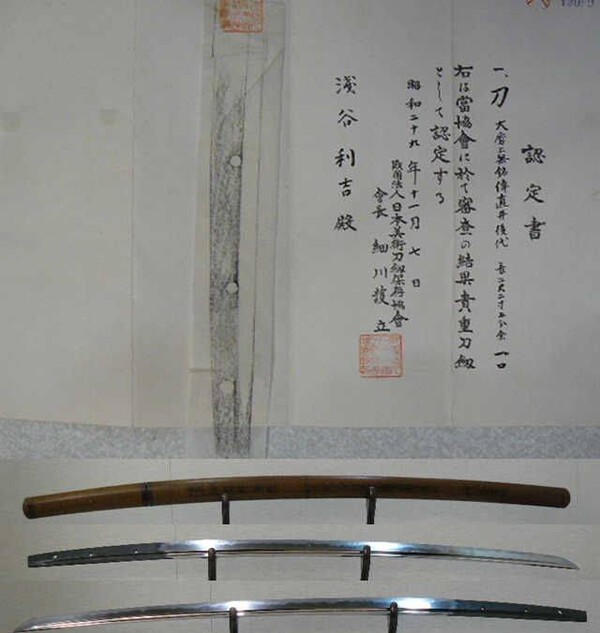 認定書
一、刀 大磨上無銘傳直井後代 長二尺二寸五分余 一口
右は當協會に於て審査の結果貴重刀剱
として認定する
昭和二十九年十一月七日
財團法人日本美術刀剱保存協會
會長 細川護立
浅谷利吉殿